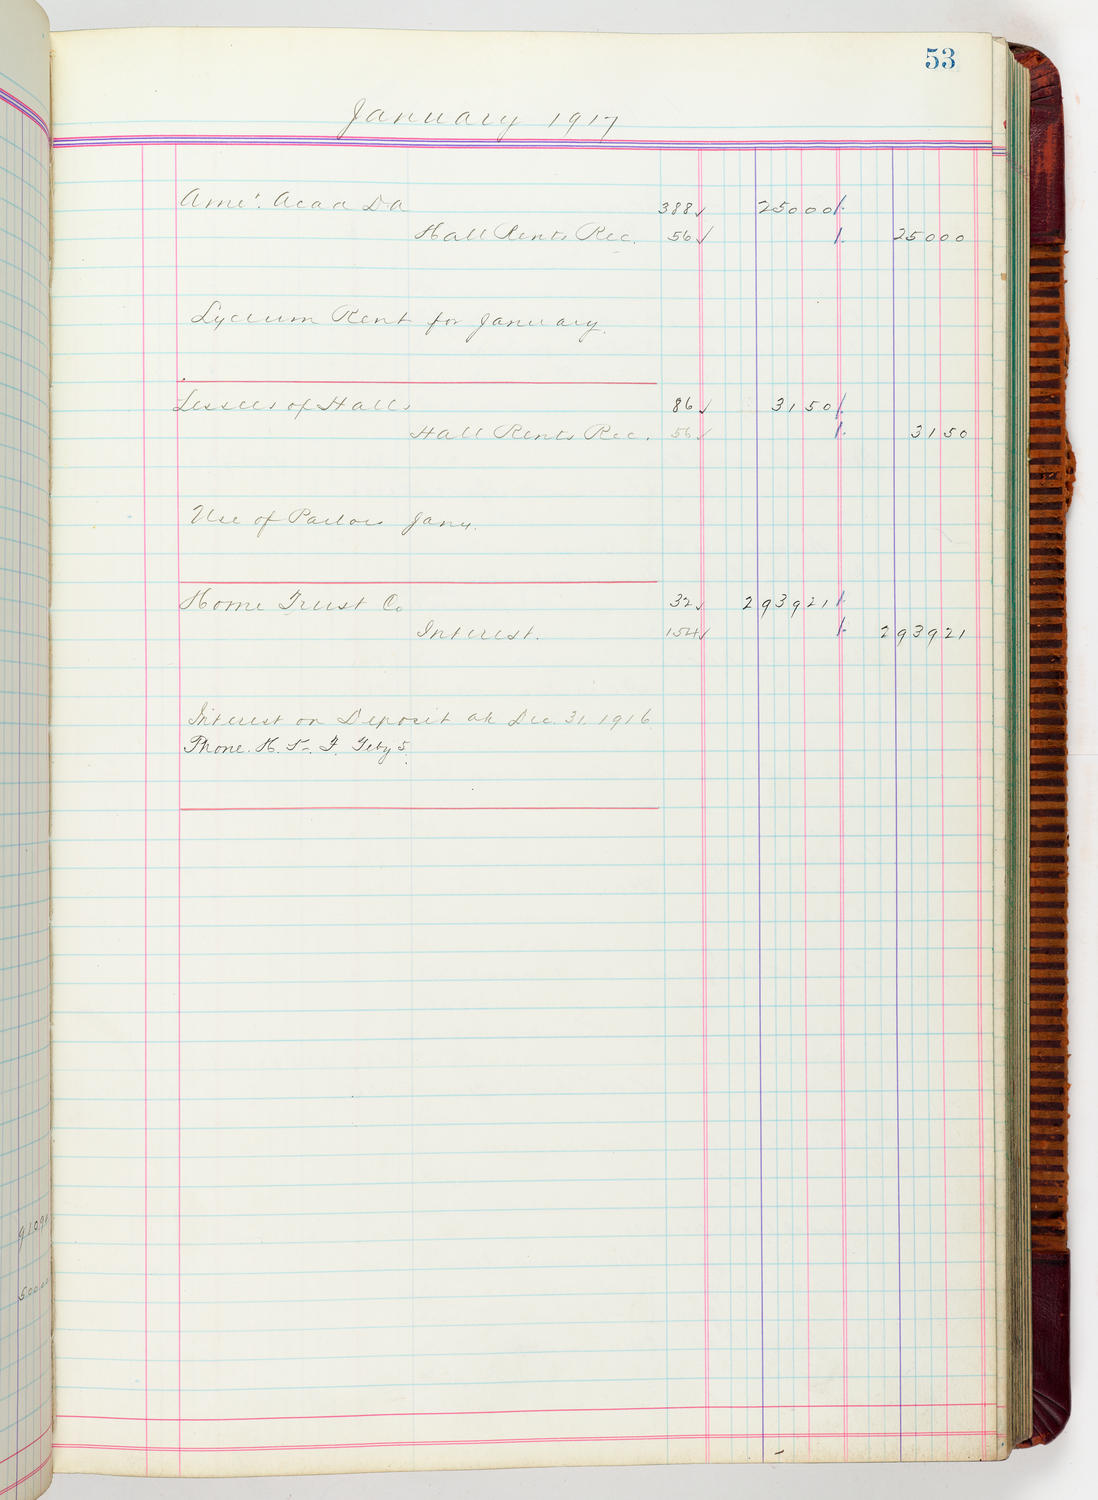 53
January 1917
Ame'. Acad DA 388✓ 25000
Hall Rents Rec. 56✓ 25000
Lyceum Rent for January.
Lessees of Halls 86✓ 3150
Hall Rents Rec. 56✓ 3150
Use of Parlors Jany.
Home Trust Co 32✓ 293921
Interest. 154✓ 293921
Interest on Deposit at Dec. 31, 1916
Phone. H. F. Feby 5.